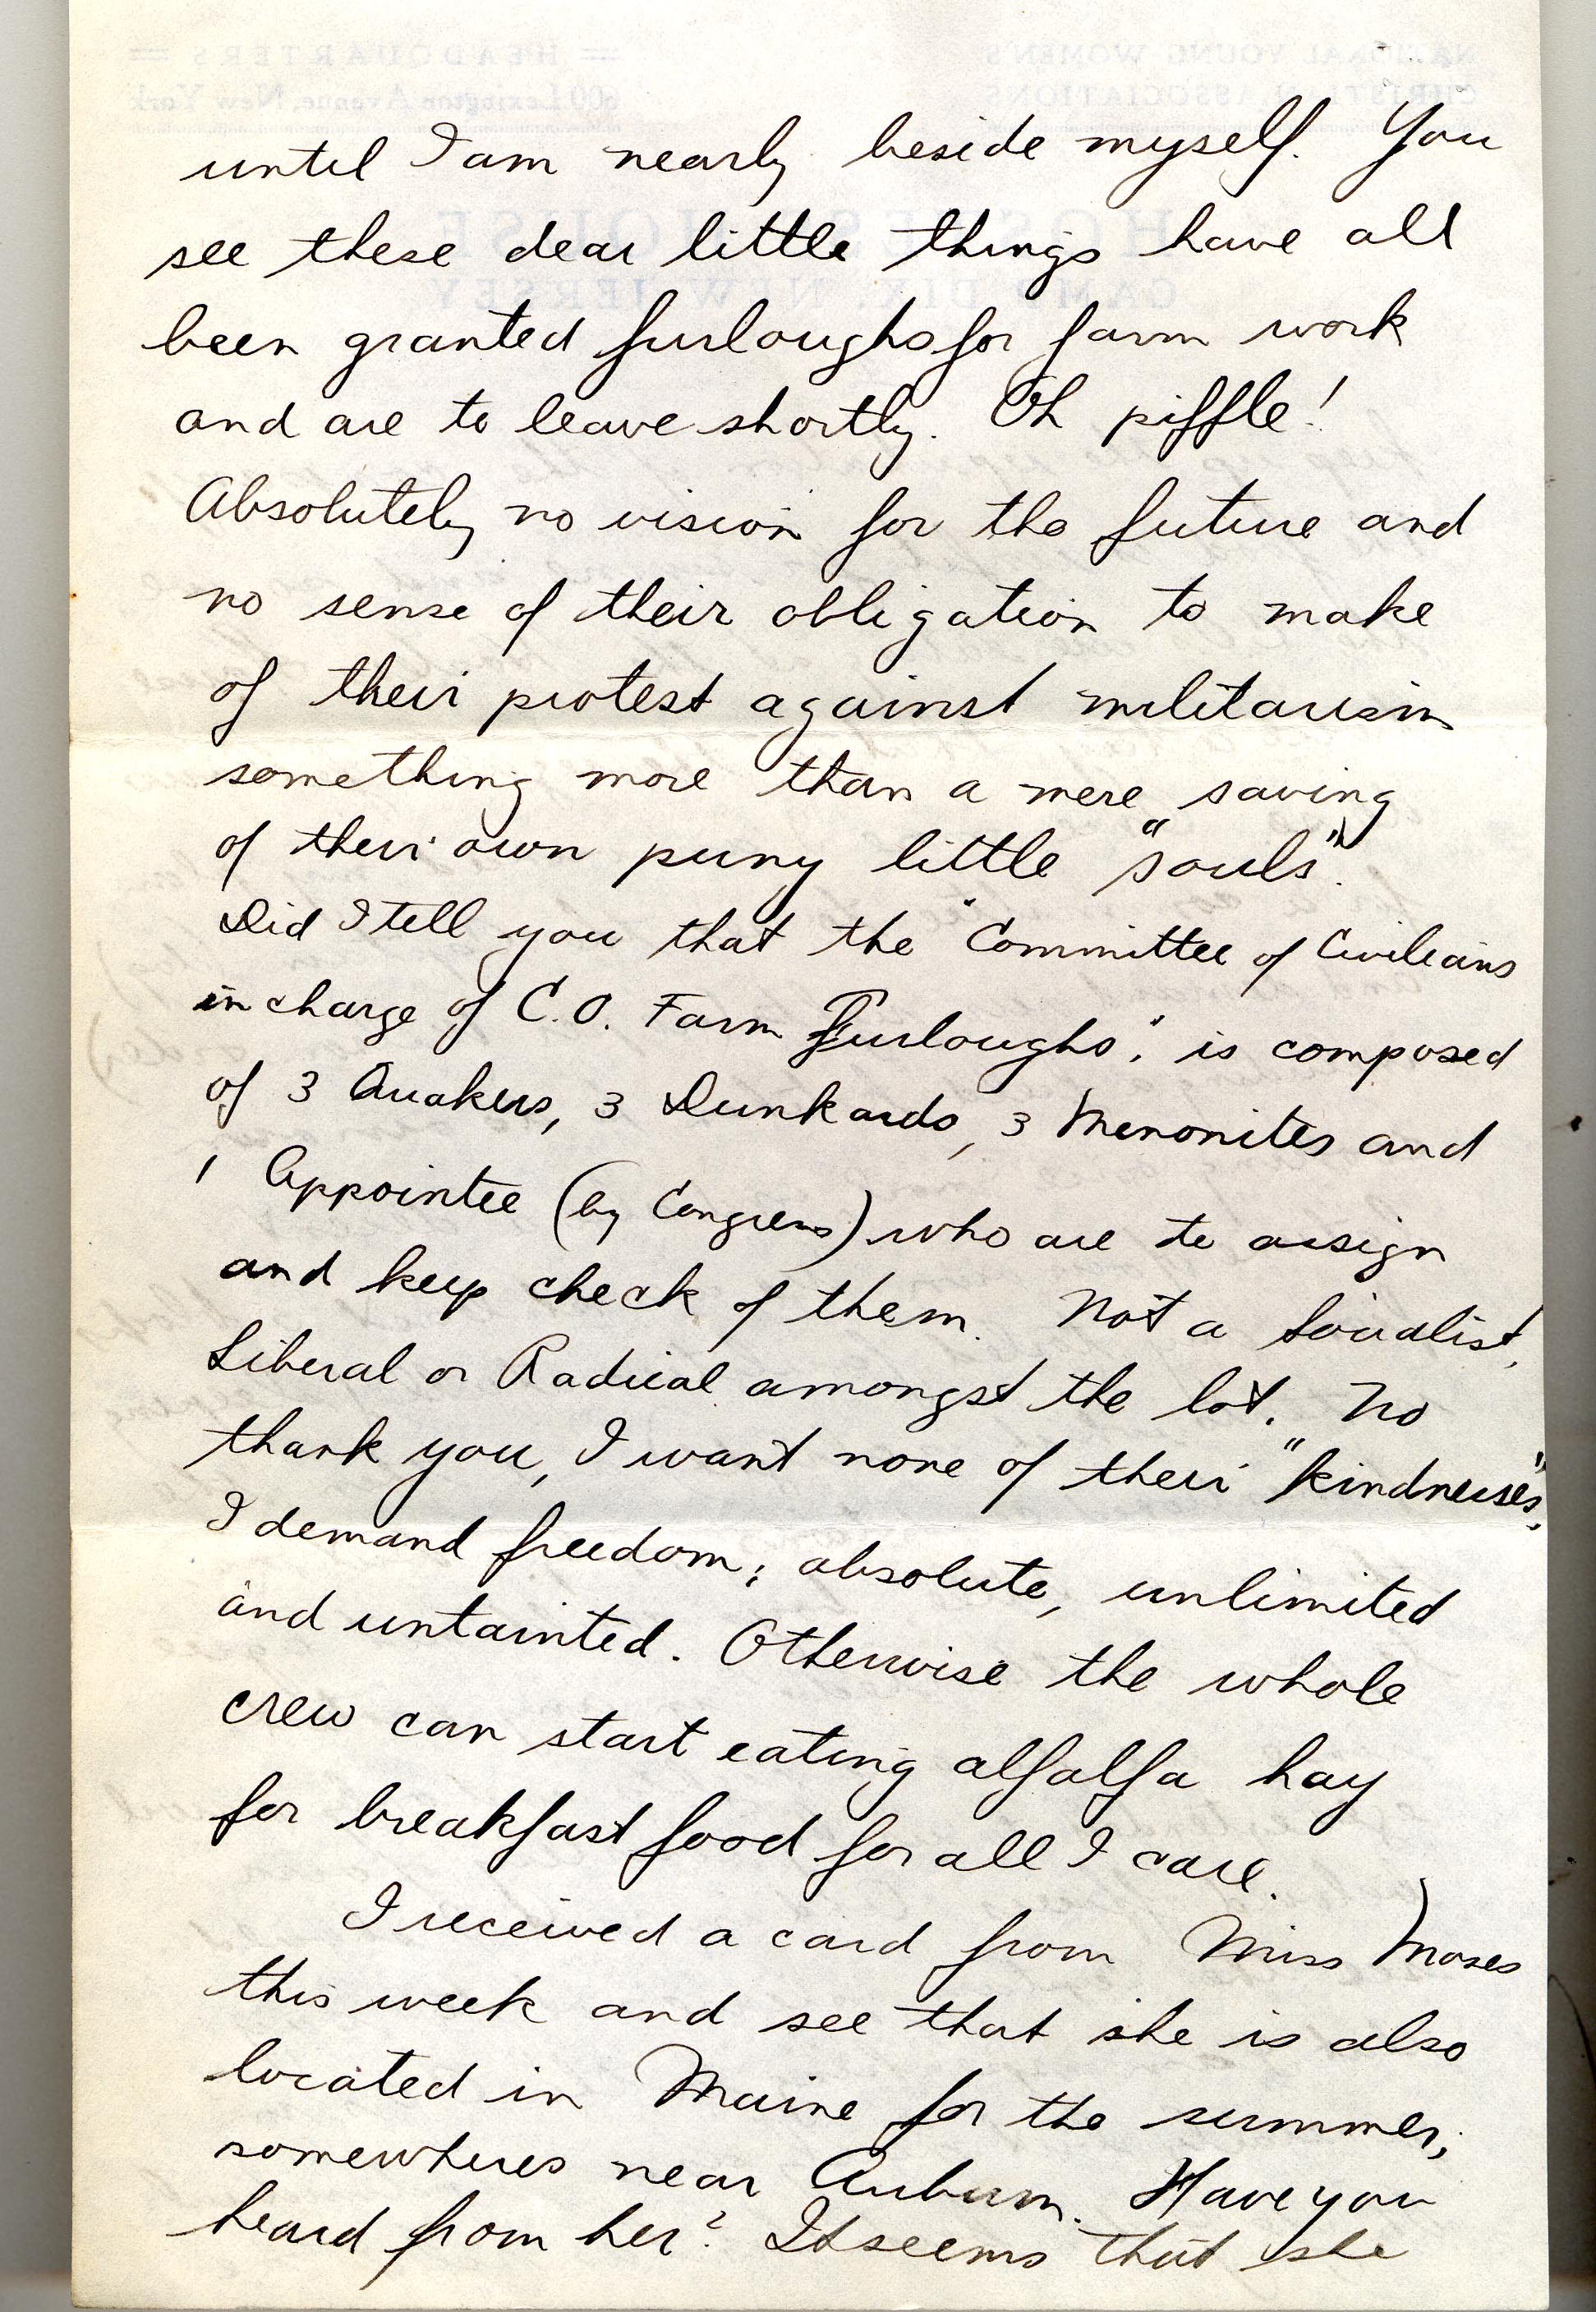 NATIONAL YOUNG WOMEN'S
CHRISTIAN ASSOCIATIONS
= HEADQUARTERS =
600 Lexington Avenue, New York
HOSTESS HOUSE
CAMP DIX, NEW JERSEY
until I am nearly beside myself. You
see these dear little things have all
been granted furloughs for farm work
and are to leave shortly. Oh piffle!
Absolutely no vision for the future and
no sense of their obligation to make
of their protest against militarism
something more than a mere saving
of their own puny little "souls".
Did I tell you that the "Committee of Civilians
in charge of C.O. Farm Furloughs", is composed
of 3 Quakers, 3 Dunkards, 3 Menonites and
1 Appointee (by Congress) who are to assign
and keep check of them. Not a Socialist,
Liberal or Radical amongst the lot. No
thank you, I want none of their "kindnesses".
I demand freedom; absolute, unlimited
and untainted. Otherwise the whole
crew can start eating alfalfa hay
for breakfast food for all I care.
I received a card from Miss Moses
this week and see that she is also
located in Maine for the summer,
somewheres near Auburn. Have you
heard from her? It seems that she